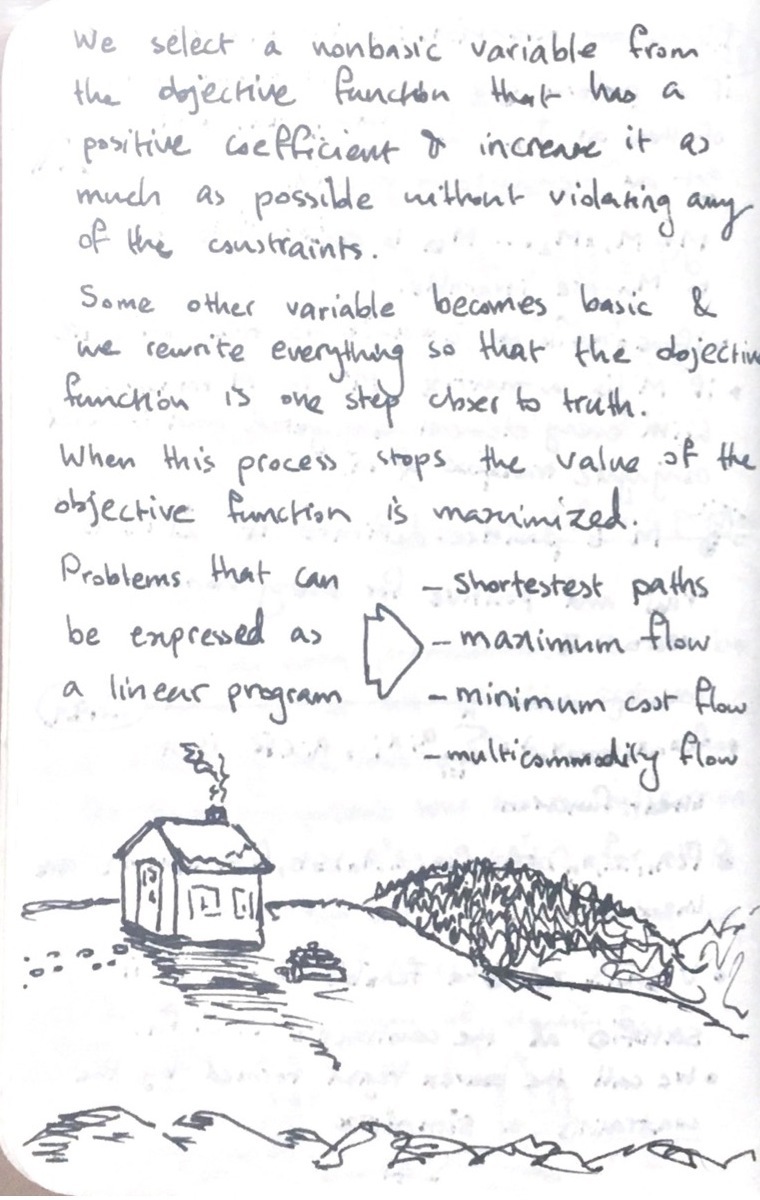 We select a nonbasic variable from
the objective function that has a
positive coefficient & increase it as
much as possible without violating any
of the constraints.
Some other variable becomes basic &
we rewrite everything so that the
function is one step closer to truth.
When this process stops the value of the
objective function is maximized.
Problems that can
be expressed as
a linear program
- shortestest paths
- maximum flow
- minimum cost flow
- multicommodity flow